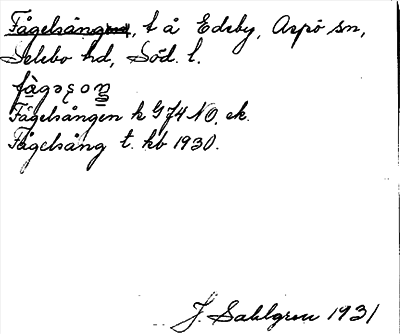 Fågelsång, t å Edeby, Aspö sn,
Selebo hd, Söd. l.
fàgǝsoŋ
Fågelsången k G74 NO, ek.
Fågelsång t. kb 1930.
J. Sahlgren 1931